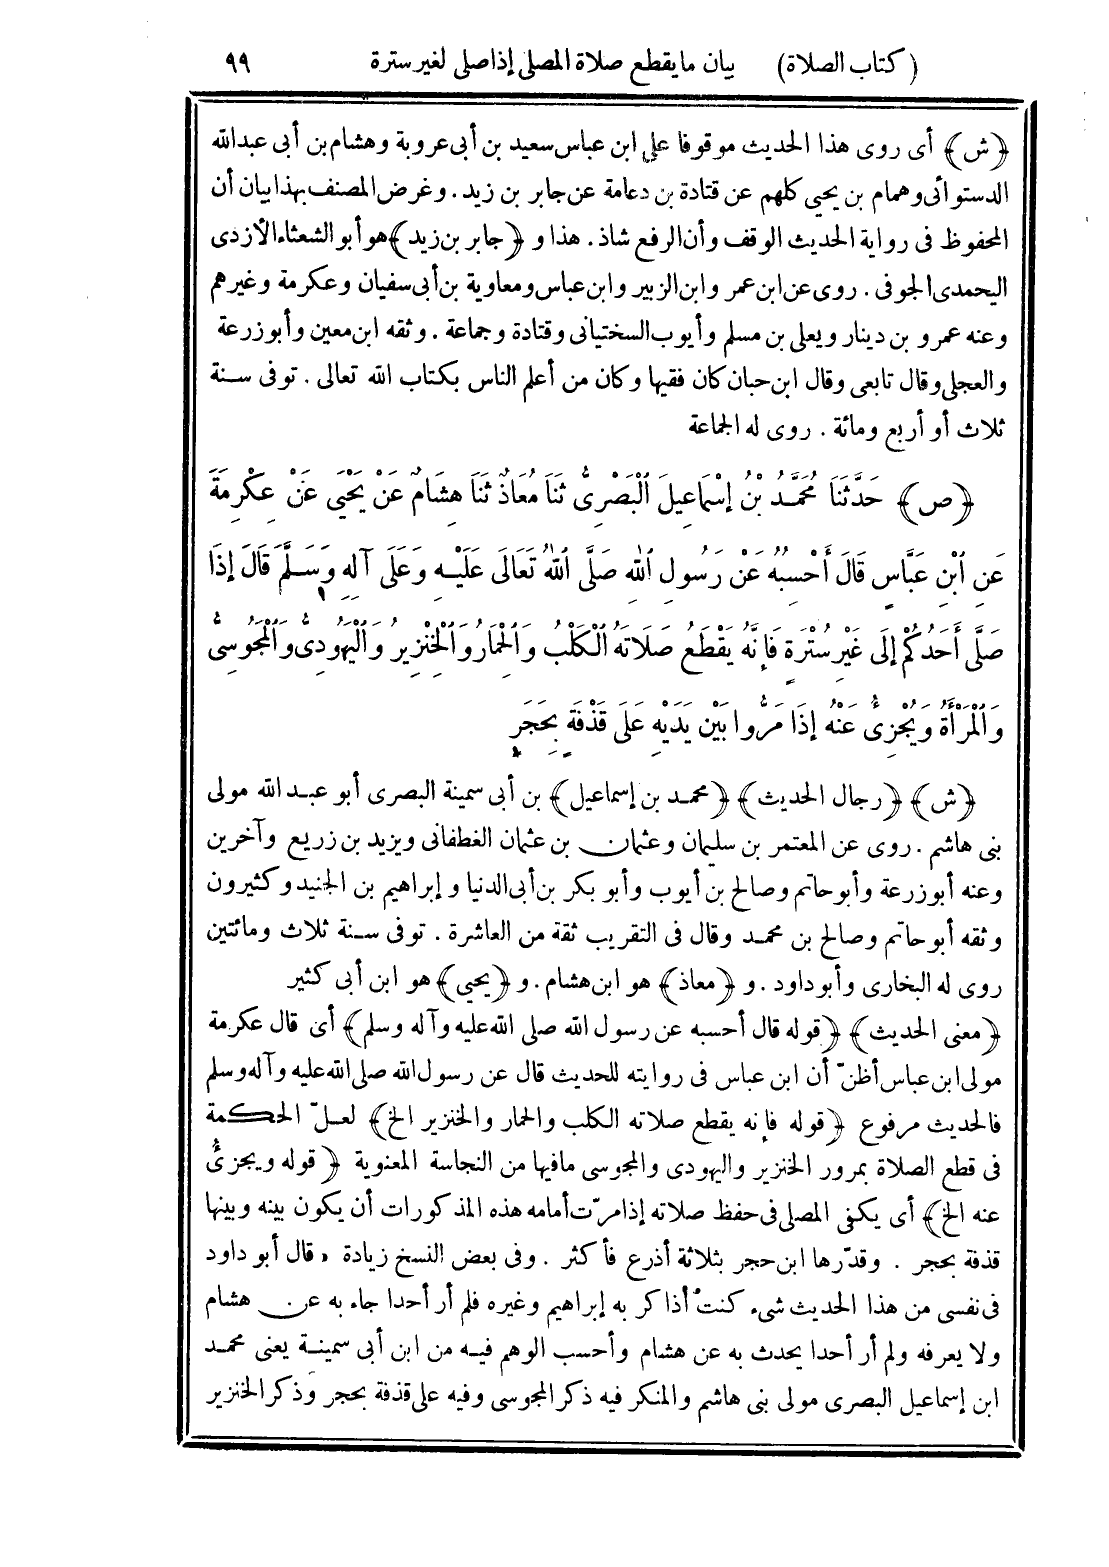 (كتاب الصلاة) بيان ما يقطع صلاة المصلى إذا صلى لغير سترة ٩٩
﴿ش﴾ أى روى هذا الحديث موقوفا على ابن عباس سعيد بن أبى عروبة وهشام بن أبى عبد الله
الدستوائى وهمام بن يحيى كلهم عن قتادة بن دعامة عن جابر بن زيد. وغرض المصنف بهذا بيان أن
المحفوظ فى رواية الحديث الوقف وأن الرفع شاذ. هذا و ﴿جابر بن زيد﴾ هو أبو الشعثاء الأزدى
اليحمدى الجوفى. روى عن ابن عمر وابن الزبير وابن عباس ومعاوية بن أبى سفيان وعكرمة وغيرهم
وعنه عمرو بن دينار ويعلى بن مسلم وأيوب السختيانى وقتادة وجماعة. وثقه ابن معين وأبو زرعة
والعجلى وقال تابعى وقال ابن حبان كان فقيها وكان من أعلم الناس بكتاب الله تعالى. توفى سنة
ثلاث أو أربع ومائة. روى له الجماعة
﴿ص﴾ حَدَّثَنَا مُحَمَّدُ بْنُ إِسْمَاعِيلَ الْبَصْرِىُّ ثَنَا مُعَاذٌ ثَنَا هِشَامٌ عَنْ يَحْيَى عَنْ عِكْرِمَةَ
عَنِ ابْنِ عَبَّاسٍ قَالَ أَحْسِبُهُ عَنْ رَسُولِ اللهِ صَلَّى اللهُ تَعَالَى عَلَيْهِ وَعَلَى آلِهِ وَسَلَّمَ قَالَ إِذَا
صَلَّى أَحَدُكُمْ إِلَى غَيْرِ سُتْرَةٍ فَإِنَّهُ يَقْطَعُ صَلَاتَهُ الْكَلْبُ وَالْحِمَارُ وَالْخِنْزِيرُ وَالْيَهُودِىُّ وَالْمَجُوسِىُّ
وَالْمَرْأَةُ وَيُجْزِئُ عَنْهُ إِذَا مَرُّوا بَيْنَ يَدَيْهِ عَلَى قَذْفَةٍ بِحَجَرٍ
﴿ش﴾ ﴿رجال الحديث﴾ ﴿محمد بن إسماعيل﴾ بن أبى سمينة البصرى أبو عبد الله مولى
بنى هاشم. روى عن المعتمر بن سليمان وعثمان بن عثمان الغطفانى ويزيد بن زريع وآخرين
وعنه أبو زرعة وأبو حاتم وصالح بن أيوب وأبو بكر بن أبى الدنيا وإبراهيم بن الجنيد وكثيرون
وثقه أبو حاتم وصالح بن محمد وقال فى التقريب ثقة من العاشرة. توفى سنة ثلاث ومائتين
روى له البخارى وأبو داود. و ﴿معاذ﴾ هو ابن هشام. و ﴿يحيى﴾ هو ابن أبى كثير
﴿معنى الحديث﴾ ﴿قوله قال أحسبه عن رسول الله صلى الله عليه وآله وسلم﴾ أى قال عكرمة
مولى ابن عباس أظنّ أن ابن عباس فى روايته للحديث قال عن رسول الله صلى الله عليه وآله وسلم
فالحديث مرفوع ﴿قوله فإنه يقطع صلاته الكلب والحمار والخنزير الخ﴾ لعلّ الحكمة
فى قطع الصلاة بمرور الخنزير واليهودى والمجوسى ما فيها من النجاسة المعنوية ﴿قوله ويجزئُ
عنه الخ﴾ أى يكفى المصلى فى حفظ صلاته إذا مرّت أمامه هذه المذكورات أن يكون بينه وبينها
قذفة بحجر. وقدّرها ابن حجر بثلاثة أذرع فأكثر. وفى بعض النسخ زيادة ، قال أبو داود
فى نفسى من هذا الحديث شىء كنتُ أذاكر به إبراهيم وغيره فلم أر أحدا جاء به عن هشام
ولا يعرفه ولم أر أحدا يحدث به عن هشام وأحسب الوهم فيه من ابن أبى سمينة يعنى محمد
ابن إسماعيل البصرى مولى بنى هاشم والمنكر فيه ذكر المجوسى وفيه على قذفة بحجر وذكر الخنزير